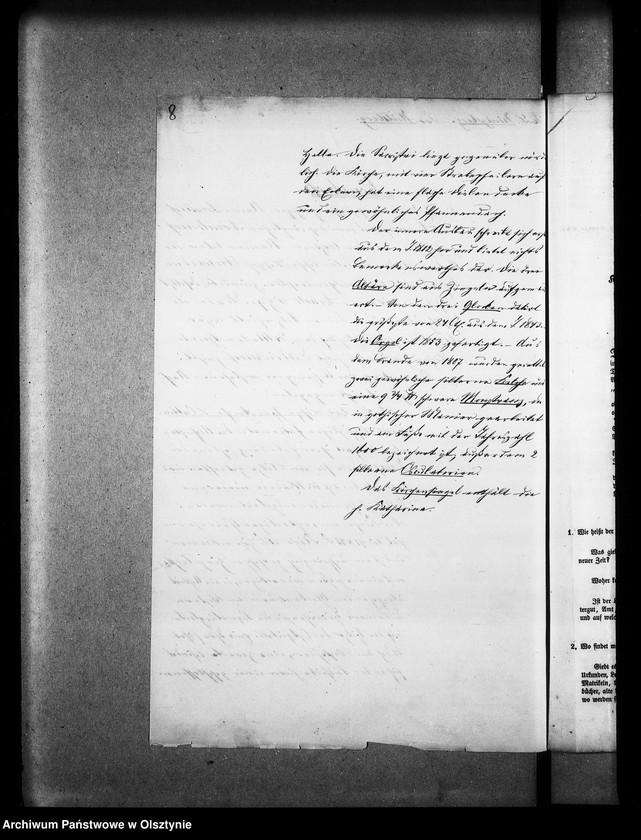 8
Halle. Die Sacristei liegt gegenüber nörd
lich. Die Kirche, mit vier Strebepfeilern auf
den Ecken, hat eine flache Dielendecke
und ein gewöhnliches Pfannendach.
Der innere Ausbau schreibt sich erst
aus dem J. 1812 her und bietet nichts
Bemerkenswerthes dar. Die drei
Altäre sind aus Ziegeln aufgem
ert. Von den drei Glocken datirt
die größeste von 24 Ct. aus dem J. 1843.
Die Orgel ist 1853 gefertigt. Aus
dem Brande von 1807 wurden gerettet
zwei gewöhnliche silberne Kelche und
eine 9 3/4 schwere Monstranz, die
in gothischer Manier gearbeitet
und am Fuße mit der Jahreszahl
1600 bezeichnet ist, außerdem 2
silberne Osculatorien.
Das Kirchensiegel enthält die
h. Katharina.
1. Wie heißt der
Was gie
neuer Zeit?
Woher k
Ist der
tergut, Amt
und auf welc
2. Wo findet m
Giebt es
Urkunden, L
Matrikeln,
bücher, alte
wo werden
Archiwum Państwowe w Olsztynie